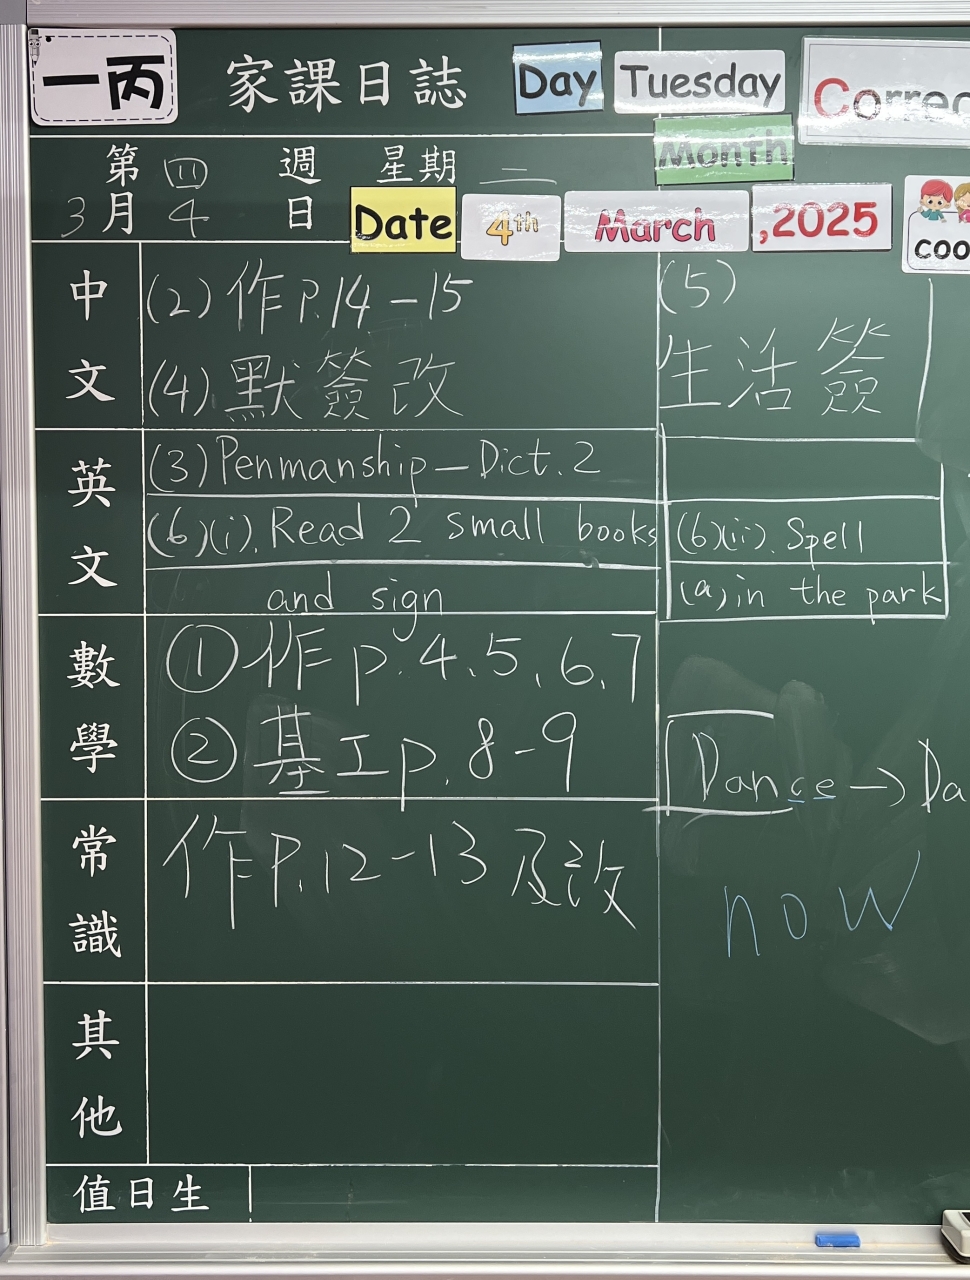 一丙 家課日誌 Day Tuesday Correc
Month
第 四 週 星期 二
3月 4 日 Date 4th March ,2025
coo
中文
(2) 作 P.14-15
(4) 默簽改
(5)
生活簽
英文
(3) Penmanship - Dict. 2
(6)(i). Read 2 small books
and sign
(6)(ii). Spell
(a) in the park
數學
① 作 p. 4、5、6、7
② 基工 p. 8-9
Dance → Da
常識
作 P.12-13 及改
now
其他
值日生